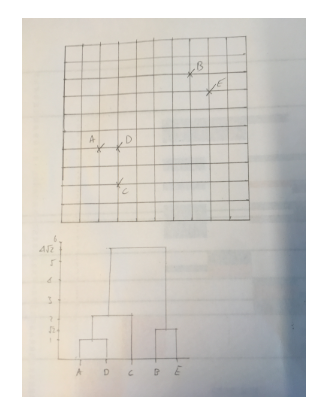 B
E
A D
C
5
4
3
2
√2
1
A D C B E